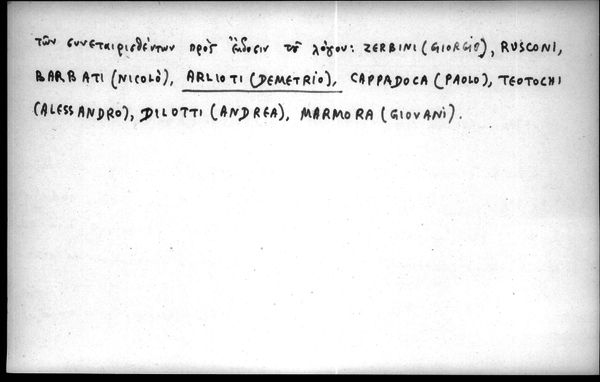 τῶν συνεταιρισθέντων πρὸς ἔκδοσιν τοῦ λόγου: ZERBINI (GIORGIO), RUSCONI,
BARBATI (NICOLÒ), ARLIOTI (DEMETRIO), CAPPADOCA (PAOLO), TEOTOCHI
(ALESSANDRO), DILOTTI (ANDREA), MARMORA (GIOVANI).